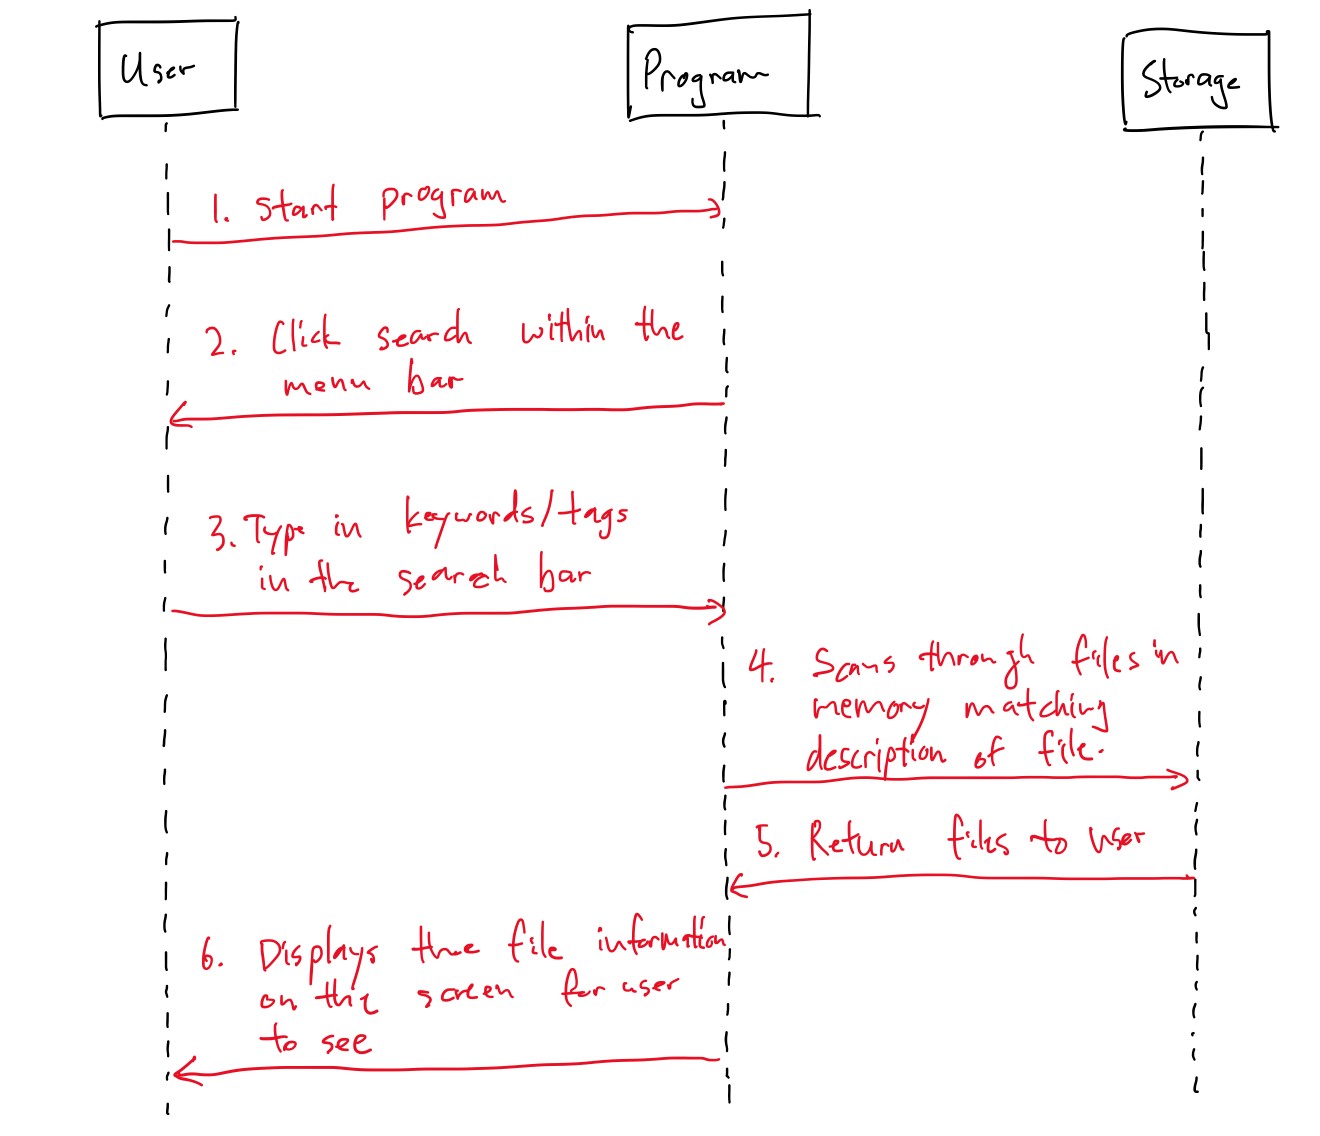 User
Program
Storage
1. Start program
2. Click search within the
menu bar
3. Type in keywords/tags
in the search bar
4. Scans through files in
memory matching
description of file.
5. Return files to user
6. Displays the file information
on the screen for user
to see